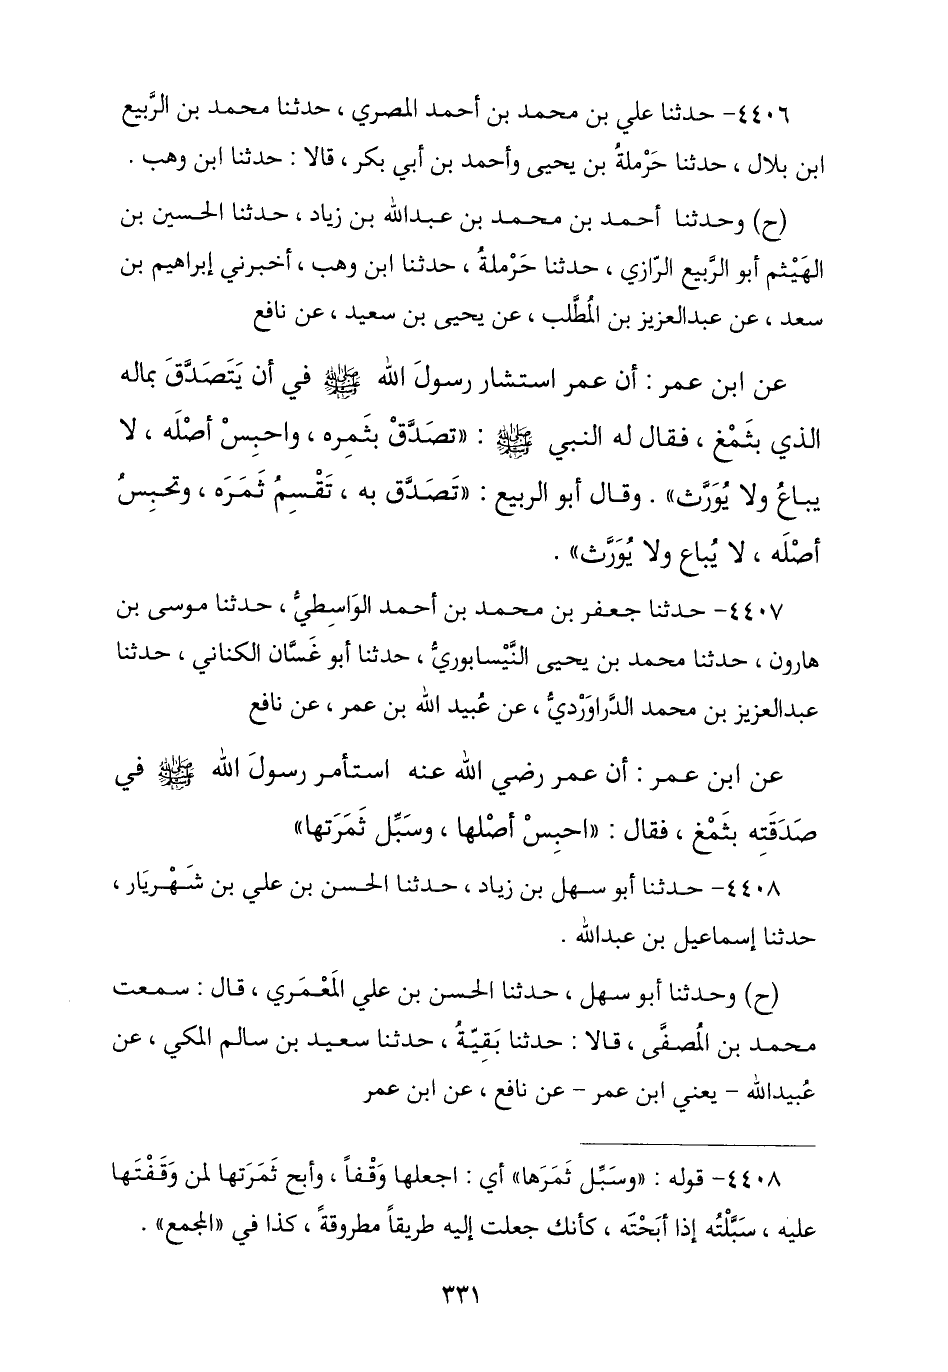 ٤٤٠٦- حدثنا علي بن محمد بن أحمد المصري ، حدثنا محمد بن الرَّبيع
ابن بلال ، حدثنا حَرْملةُ بن يحيى وأحمد بن أبي بكر ، قالا : حدثنا ابن وهب .
(ح) وحدثنا أحمد بن محمد بن عبدالله بن زياد ، حدثنا الحسين بن
الهَيْثم أبو الرَّبيع الرّازي ، حدثنا حَرْملةُ ، حدثنا ابن وهب ، أخبرني إبراهيم بن
سعد ، عن عبدالعزيز بن المُطَّلب ، عن يحيى بن سعيد ، عن نافع
عن ابن عمر : أن عمر استشار رسولَ الله ﷺ في أن يَتَصَدَّقَ بماله
الذي بثَمْغ ، فقال له النبي ﷺ : «تصَدَّقْ بثَمره ، واحبِسْ أصْلَه ، لا
يباعُ ولا يُوَرَّث» . وقال أبو الربيع : «تَصَدَّق به ، تَقْسِمُ ثَمَرَه ، وتحبِسُ
أصْلَه ، لا يُباع ولا يُوَرَّث» .
٤٤٠٧- حدثنا جعفر بن محمد بن أحمد الوَاسِطيُّ ، حدثنا موسى بن
هارون ، حدثنا محمد بن يحيى النَّيْسابوريُّ ، حدثنا أبو غَسَّان الكناني ، حدثنا
عبدالعزيز بن محمد الدَّراوَرْديُّ ، عن عُبيد الله بن عمر ، عن نافع
عن ابن عمر : أن عمر رضي الله عنه استأمر رسولَ الله ﷺ في
صَدَقَتِه بثَمْغ ، فقال : «احبِسْ أصْلها ، وسَبِّل ثَمَرَتها»
٤٤٠٨- حدثنا أبو سهل بن زياد ، حدثنا الحسن بن علي بن شَهْرِيَار ،
حدثنا إسماعيل بن عبدالله .
(ح) وحدثنا أبو سهل ، حدثنا الحسن بن علي المَعْمَري ، قال : سمعت
محمد بن المُصفَّى ، قالا : حدثنا بَقيّةُ ، حدثنا سعيد بن سالم المكي ، عن
عُبيدالله - يعني ابن عمر - عن نافع ، عن ابن عمر
٤٤٠٨- قوله : «وسَبِّل ثَمَرَها» أي : اجعلها وَقْفاً ، وأبح ثَمَرَتها لمن وَقَفْتَها
عليه ، سَبَّلْتُه إذا أبَحْتَه ، كأنك جعلت إليه طريقاً مطروقةً ، كذا في «المجمع» .
٣٣١